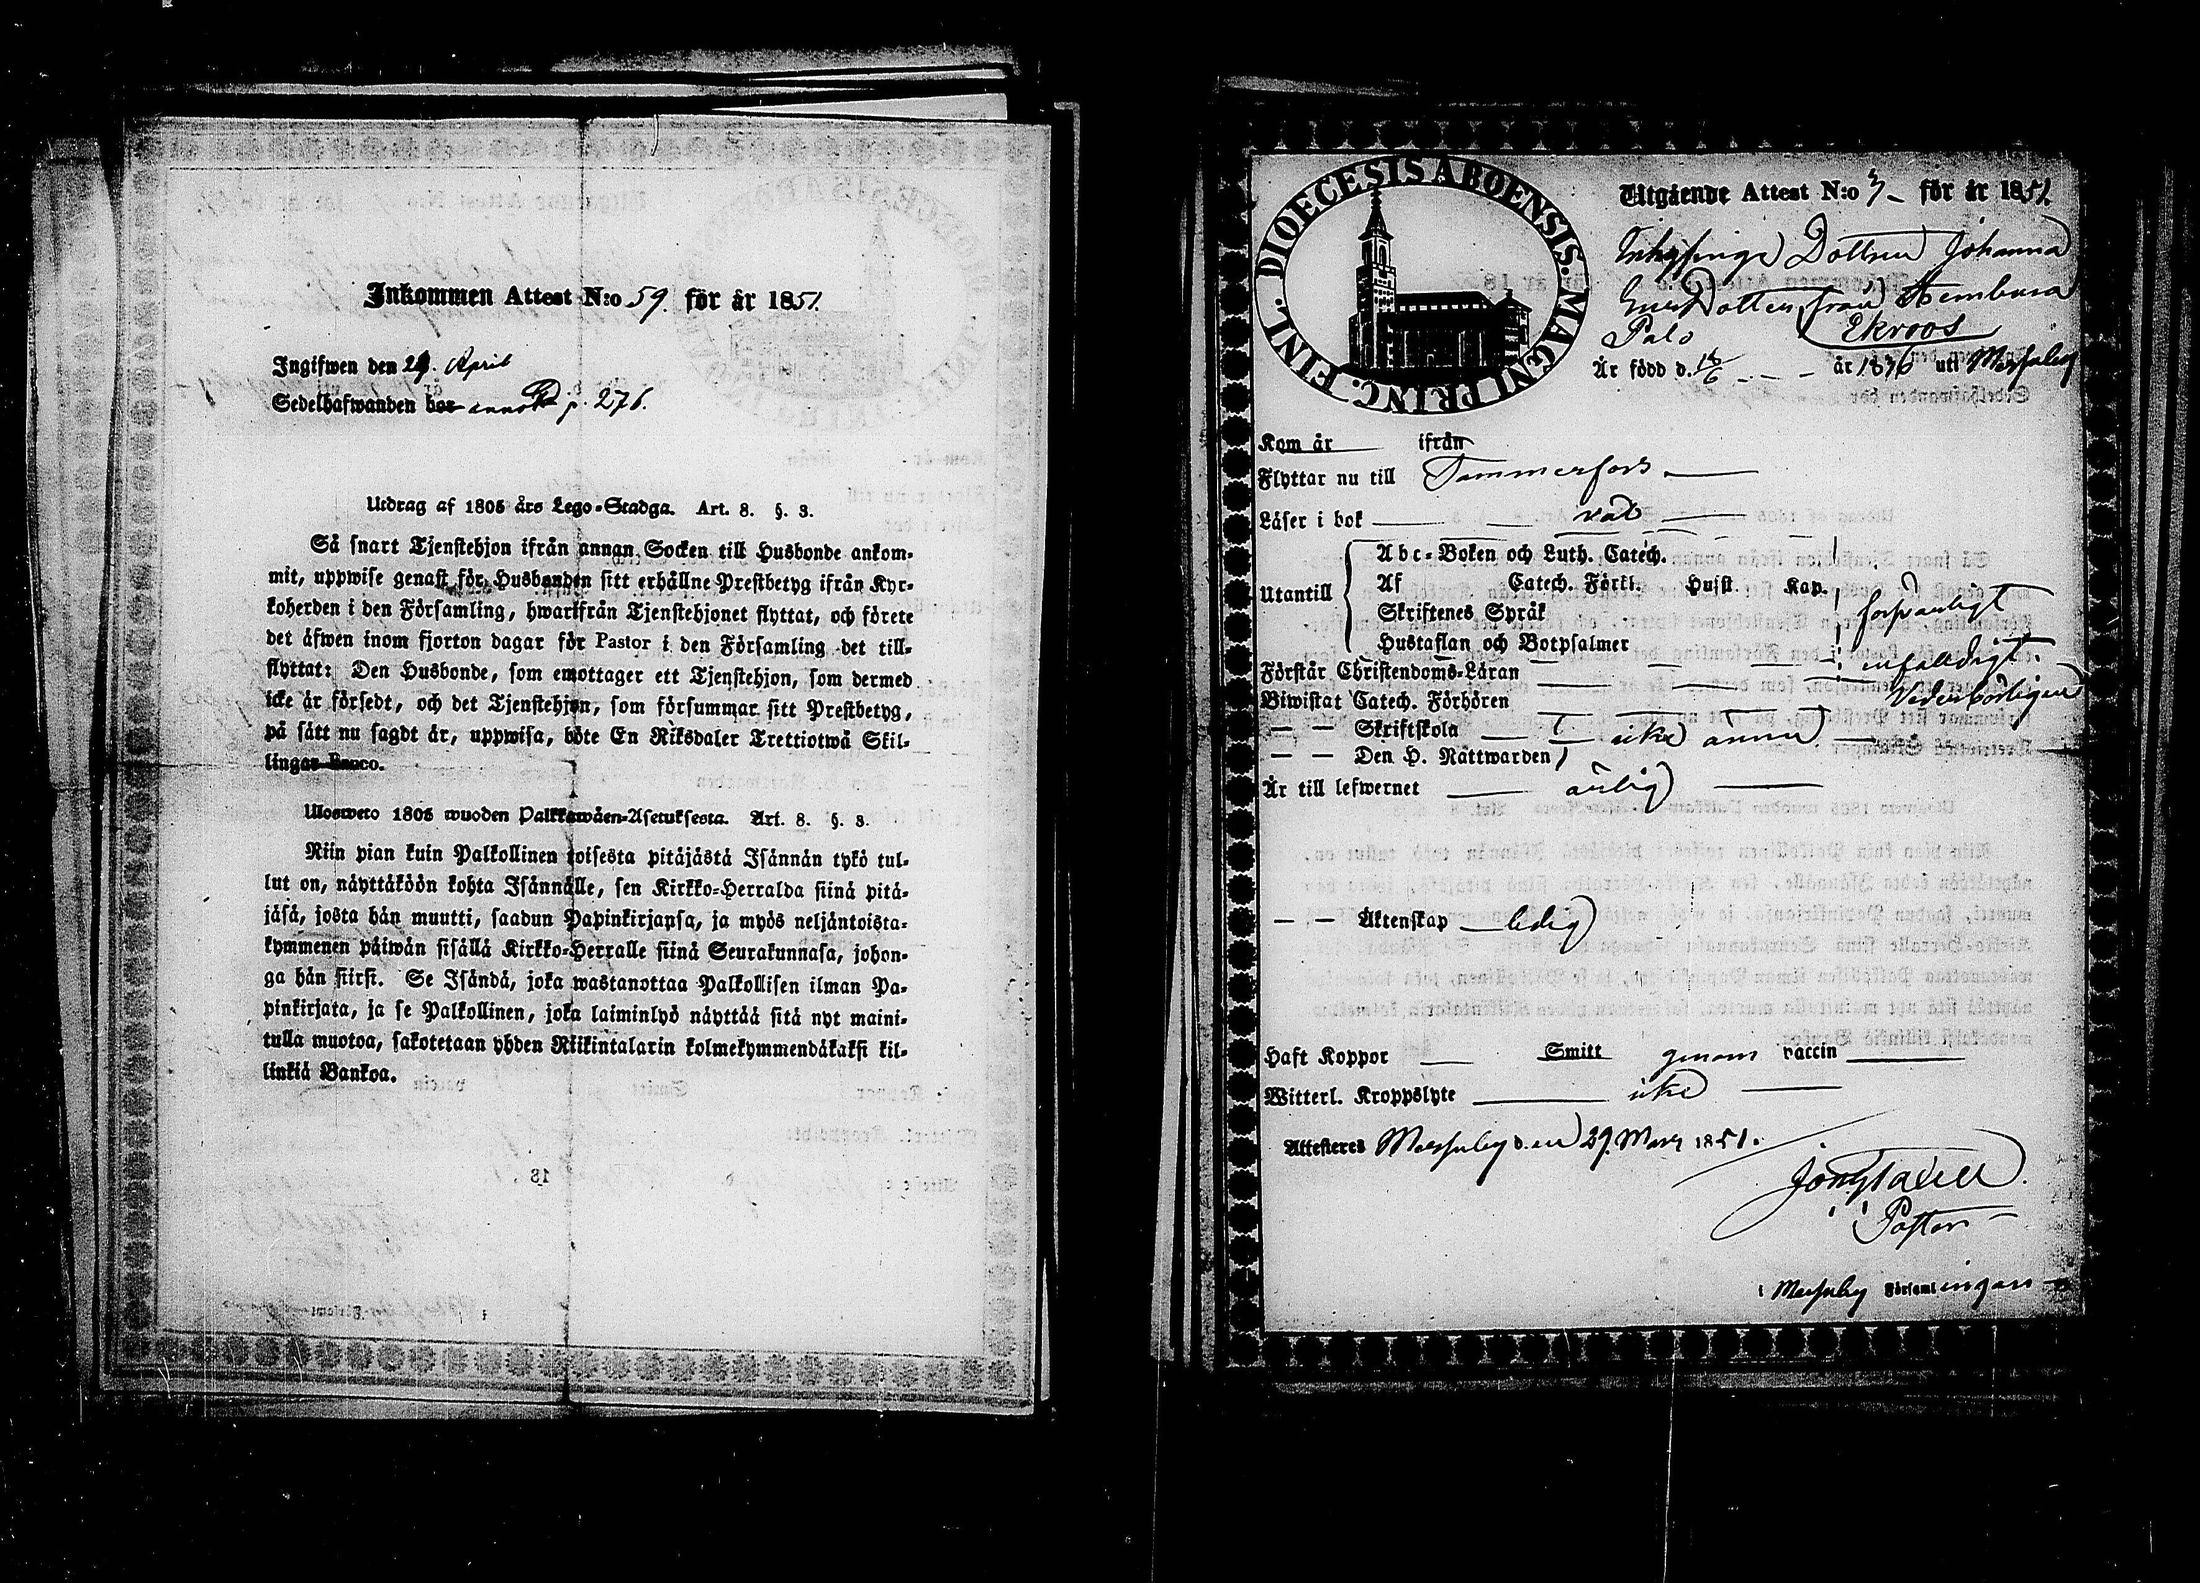 Inkommen Attest N:o 59. för år 1851.
Ingifwen den 29. April
Sedelhafwanden bor annot. p. 276.
Utdrag af 1805 års Lego-Stadga. Art. 8. §. 3.
Så snart Tjenstehjon ifrån annan Socken till Husbonde ankom-
mit, uppwise genast för Husbonden sitt erhållne Prestbetyg ifrån Kyr-
koherden i den Församling, hwarifrån Tjenstehjonet flyttat, och förete
det äfwen inom fjorton dagar för Pastor i den Församling det till-
flyttat: Den Husbonde, som emottager ett Tjenstehjon, som dermed
icke är försedt, och det Tjenstehjon, som försummar sitt Prestbetyg,
på sätt nu sagdt är, uppwisa, böte En Riksdaler Trettiotwå Skil-
lingar Banco.
Ulosweto 1805 wuoden Palkkawäen-Asetuksesta. Art. 8. §. 3.
Niin pian kuin Palkollinen toisesta pitäjästä Isännän tykö tul-
lut on, näyttäköön kohta Isännälle, sen Kirkko-Herralda siinä pitä-
jäsä, josta hän muutti, saadun Papinkirjansa, ja myös neljäntoista-
kymmenen päiwän sisällä Kirkko-Herralle siinä Seurakunnasa, johon-
ga hän siirsi. Se Isändä, joka wastanottaa Palkollisen ilman Pa-
pinkirjata, ja se Palkollinen, joka laiminlyö näyttää sitä nyt maini-
tulla muotoa, sakotetaan yhden Riikintalarin kolmekymmendäkaksi kil-
linkiä Bankoa.
DIOECESIS ABOENSIS. MAGNI PRINC. FINL.
Utgående Attest N:o 3 för år 1851.
Inhysinge Dottren Johanna
Dotter från Stembura
Palo Ekroos
Är född d. 18/6 år 1816 uti Messuby
Kom år ifrån
Flyttar nu till Tammerfors
Läser i bok
Utantill
Abc-Boken och Luth. Catech.
Af Catech. Förkl. Hust. Kap.
Skriftenes Språk
Hustaflan och Botpsalmer
försvarligt
Förstår Christendoms-Läran enfaldigt.
Biwistat Catech. Förhören Vederbörligen
— — Skriftskola icke ännu
— — Den H. Nattwarden
Är till lefwernet ärlig
— — Äktenskap ledig
Haft Koppor Smitt genom vaccin
Witterl. Kroppslyte icke
Attesteres Messuby d. 29. Mars 1851.
Pastor
i Messuby Församlingen